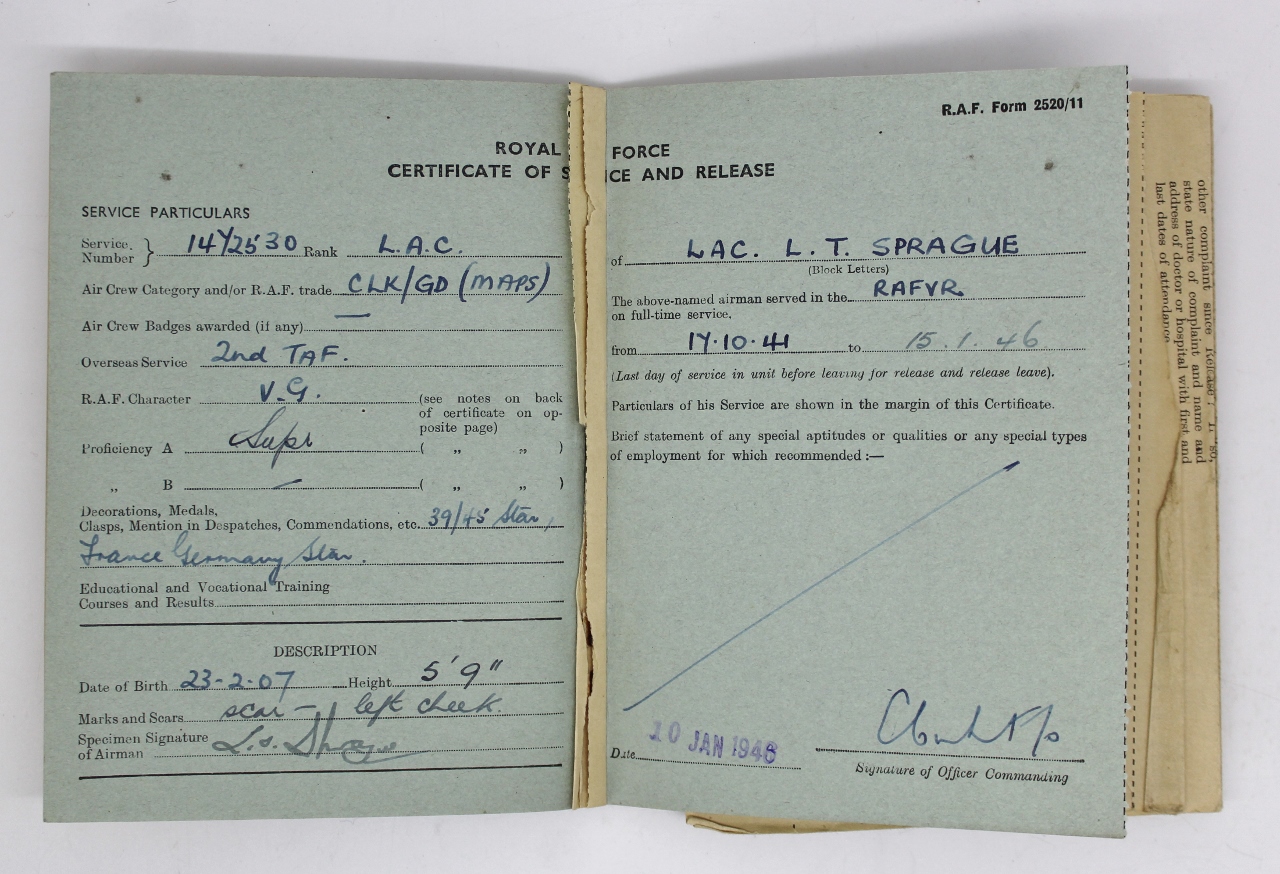 R.A.F. Form 2520/11
ROYAL FORCE
CERTIFICATE OF S ICE AND RELEASE
SERVICE PARTICULARS
Service Number } 1472530 Rank L.A.C.
Air Crew Category and/or R.A.F. trade CLK/GD (MAPS)
Air Crew Badges awarded (if any) —
Overseas Service 2nd TAF.
R.A.F. Character V.G. (see notes on back
of certificate on op-
posite page)
Proficiency A Supr ( „ „ )
„ B — ( „ „ )
Decorations, Medals,
Clasps, Mention in Despatches, Commendations, etc. 39/45 Star,
France Germany Star.
Educational and Vocational Training
Courses and Results
DESCRIPTION
Date of Birth 23-2-07 Height 5'9"
Marks and Scars scar — left cheek.
Specimen Signature
of Airman
of LAC. L. T. SPRAGUE
(Block Letters)
The above-named airman served in the RAFVR
on full-time service,
from 17·10·41 to 15.1.46
(Last day of service in unit before leaving for release and release leave).
Particulars of his Service are shown in the margin of this Certificate.
Brief statement of any special aptitudes or qualities or any special types
of employment for which recommended :—
Date 10 JAN 1946
Signature of Officer Commanding
other complaint since Release ? If so,
state nature of complaint and name and
address of doctor or hospital with first and
last dates of attendance